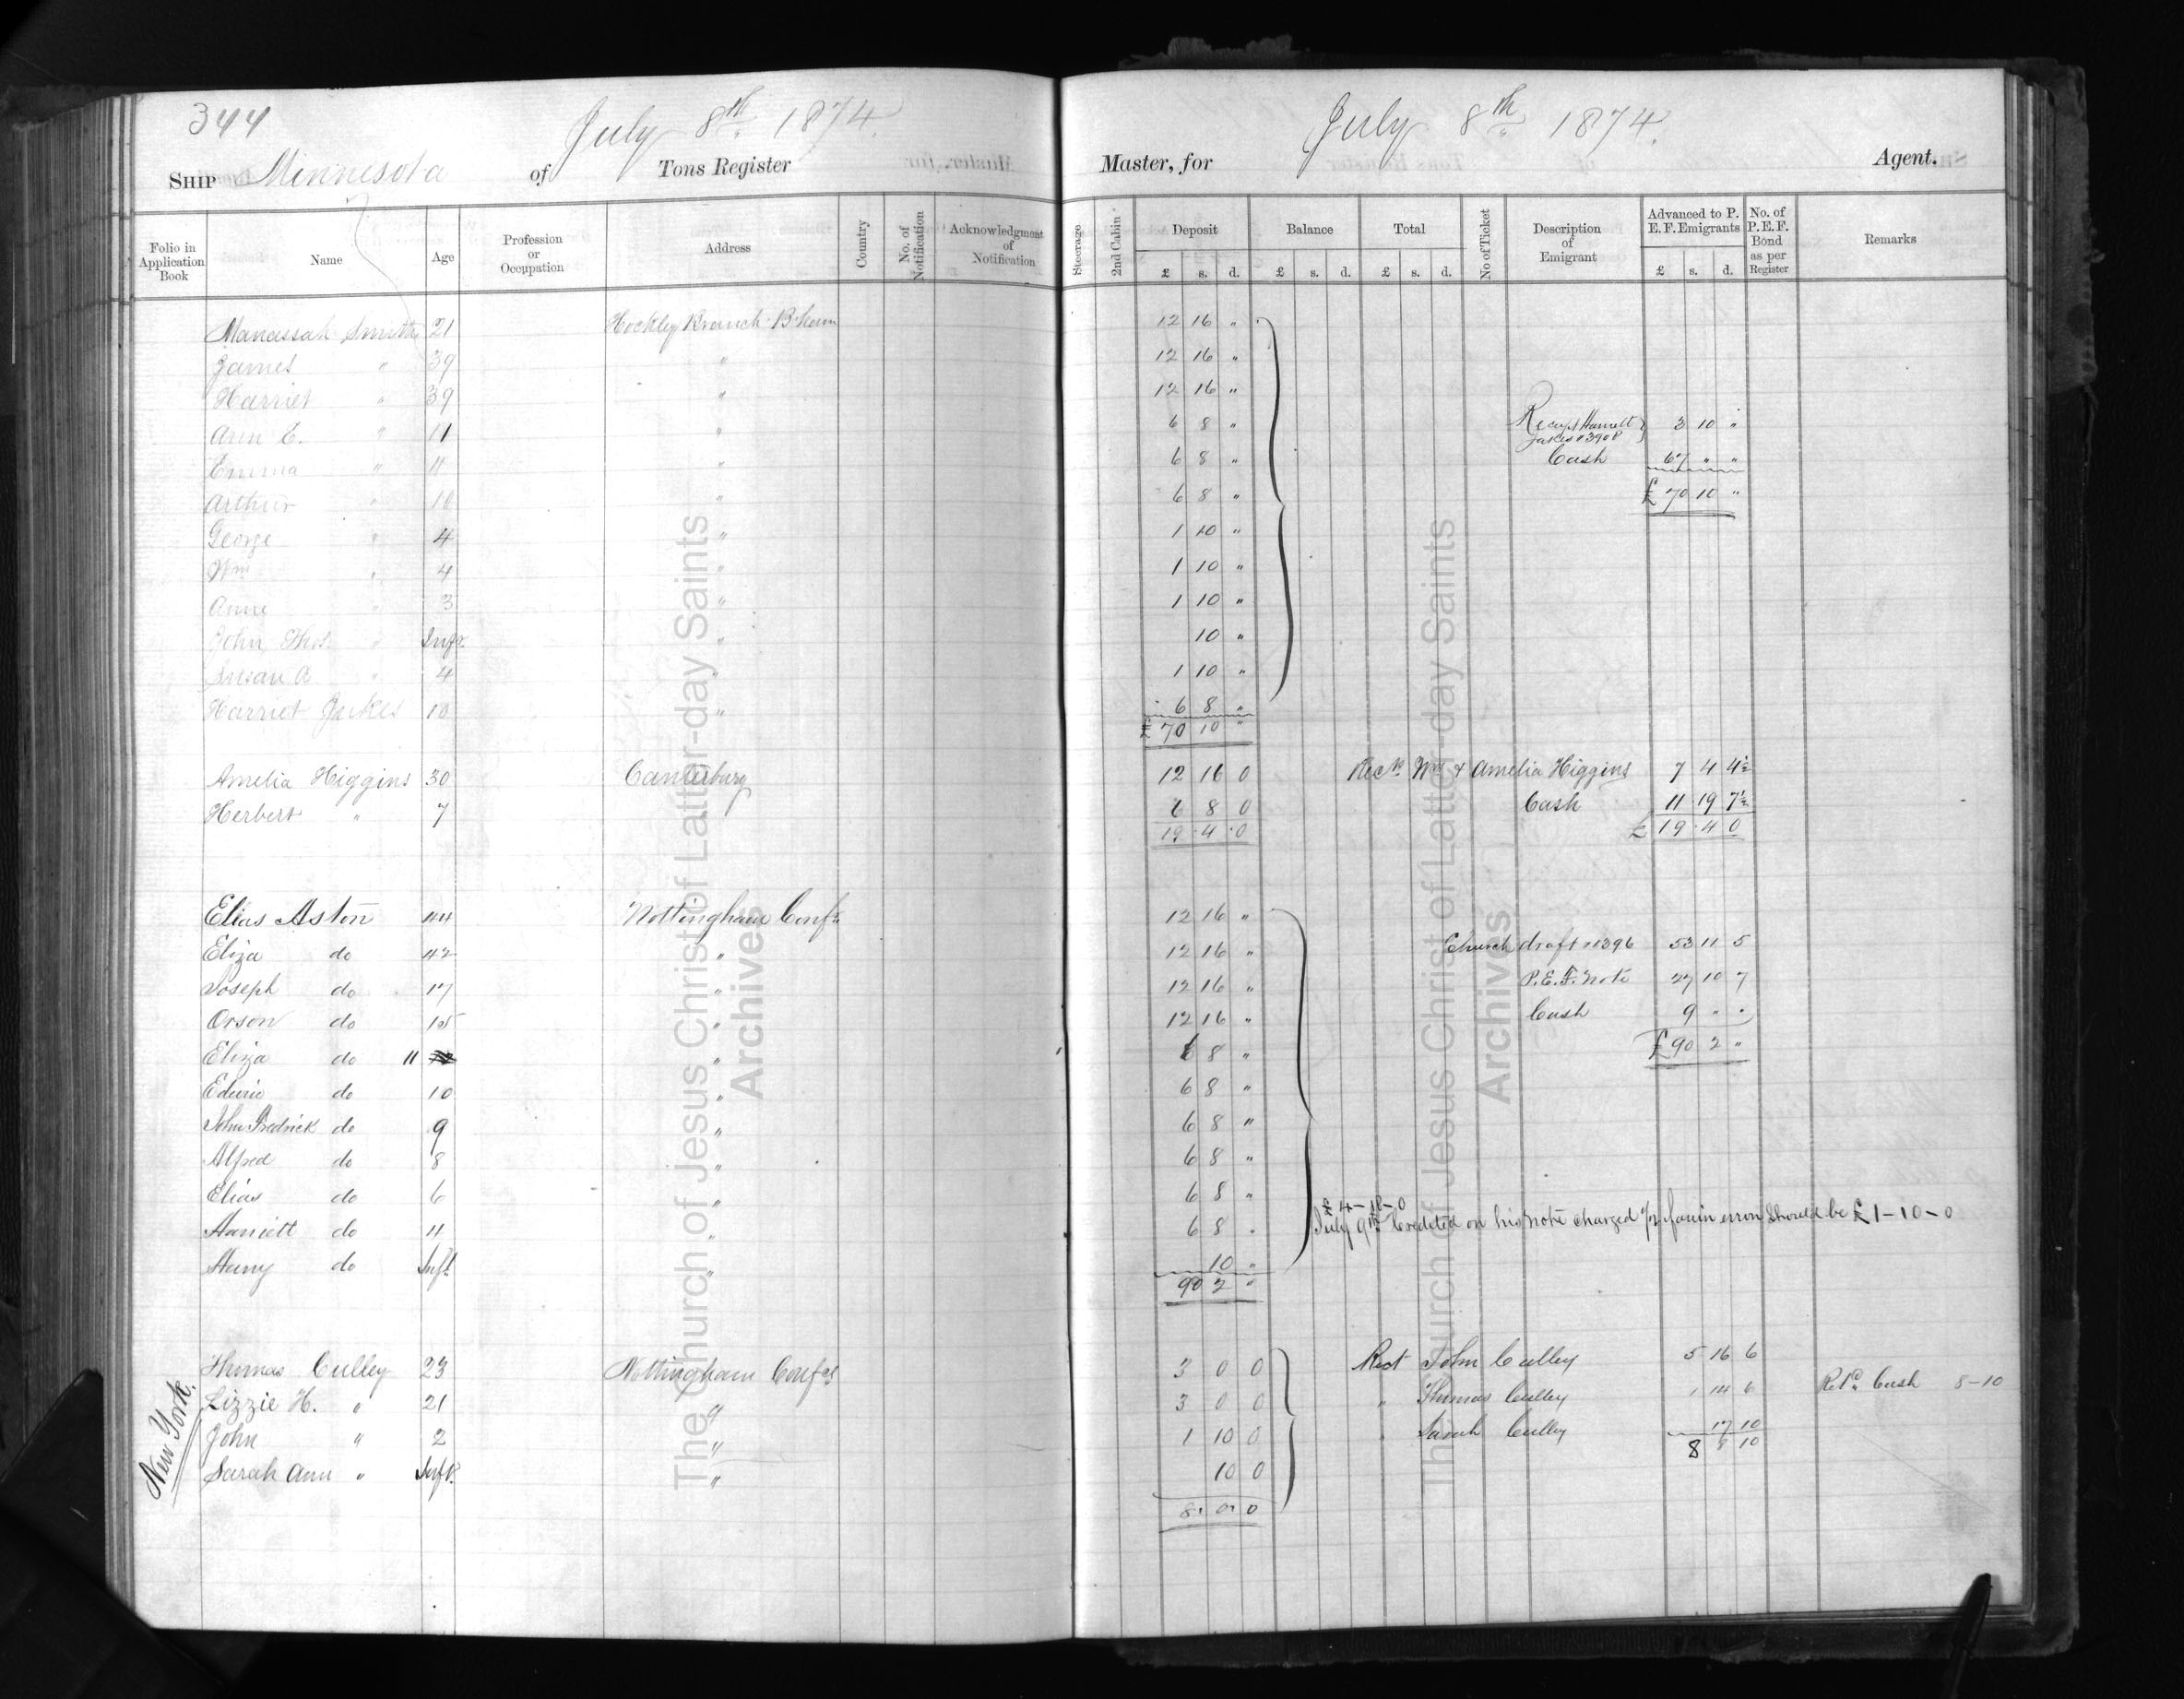 344 July 8th 1874. July 8th 1874.
SHIP Minnesota of Tons Register Master, for Agent.
Folio in Application Book Name Age Profession or Occupation Address Country No. of Notification Acknowledgment of Notification Steerage 2nd Cabin Deposit £ s. d. Balance £ s. d. Total £ s. d. No of Ticket Description of Emigrant Advanced to P. E. F. Emigrants £ s. d. No. of P.E.F. Bond as per Register Remarks
Manassah Smith 21 Hockley Branch B'ham 12 16 "
James " 39 " 12 16 "
Harriet " 39 " 12 16 "
Ann E. " 11 " 6 8 " Harriett Jukes 3 10 "
Emma " 11 " 6 8 " Cash 67 " "
Arthur " 10 " 6 8 " £ 70 10 "
George " 4 " 1 10 "
Wm " 4 " 1 10 "
Anne " 3 " 1 10 "
John Thos. " Inft. " 10 "
Susan A " 4 " 1 10 "
Harriet Jukes 10 " 6 8 "
£ 70 10 "
Amelia Higgins 30 Canterbury 12 16 0 Rect. Wm & Amelia Higgins 7 4 4½
Herbert " 7 6 8 0 Cash 11 19 7½
19 4 0 £ 19 4 0
Elias Aston 44 Nottingham Confe. 12 16 "
Eliza do 42 " 12 16 " Church draft 1396 53 11 5
Joseph do 17 " 12 16 " P.E.F. note 27 10 7
Orson do 15 " 12 16 " Cash 9 " "
Eliza do 11 " 6 8 " £90 2 "
Edwin do 10 " 6 8 "
John Fredrick do 9 " 6 8 "
Alfred do 8 " 6 8 "
Elias do 6 " 6 8 "
£4-18-0
Harriett do 11 " 6 8 " July 9th Credited on his note charged in error should be £1-10-0
Harry do Inft " 10 "
90 2 "
New York.
Thomas Culley 23 Nottingham Confe 3 0 0 Rect John Culley 5 16 6
Lizzie H. " 21 " 3 0 0 " Thomas Culley 1 14 6 Retd. Cash 8-10
John " 2 " 1 10 0 " Sarah Culley 17 10
8 8 10
Sarah Ann " Inft. " 10 0
8 0 0
The Church of Jesus Christ of Latter-day Saints
Archives
The Church of Jesus Christ of Latter-day Saints
Archives